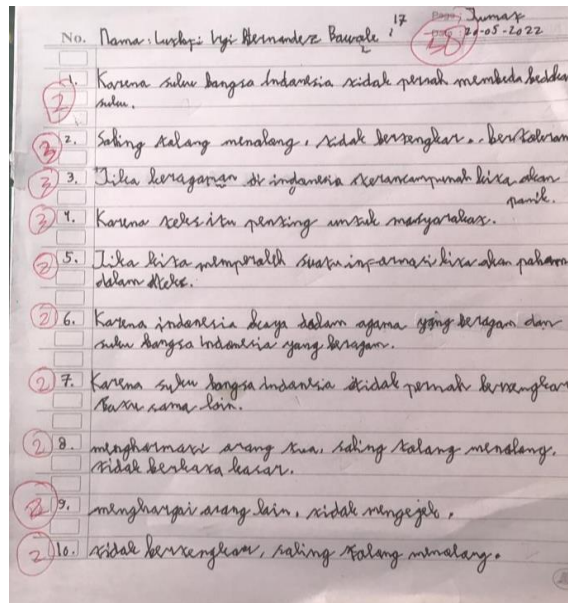 17 Page: Jumat
No. Nama: Hernandez Bawole 2 28 20-05-2022
2 1. Karena suku bangsa Indonesia tidak pernah membeda bedakan
suku.
3 2. Saling tolong menolong, tidak bertengkar.. bertoleran
3 3. Jika keragaman di indonesia terancam punah kita akan
panik.
3 4. Karena teks itu penting untuk masyarakat.
2 5. Jika kita memperoleh suatu informasi kita akan paham
dalam teks.
2 6. Karena indonesia kaya dalam agama yang beragam dan
suku bangsa Indonesia yang beragam.
2 7. Karena suku bangsa Indonesia tidak pernah bertengkar
satu sama lain.
2 8. menghormati orang tua, saling tolong menolong.
tidak berkata kasar.
2 9. menghargai orang lain, tidak mengejek.
2 10. tidak bertengkar, saling tolong menolong.